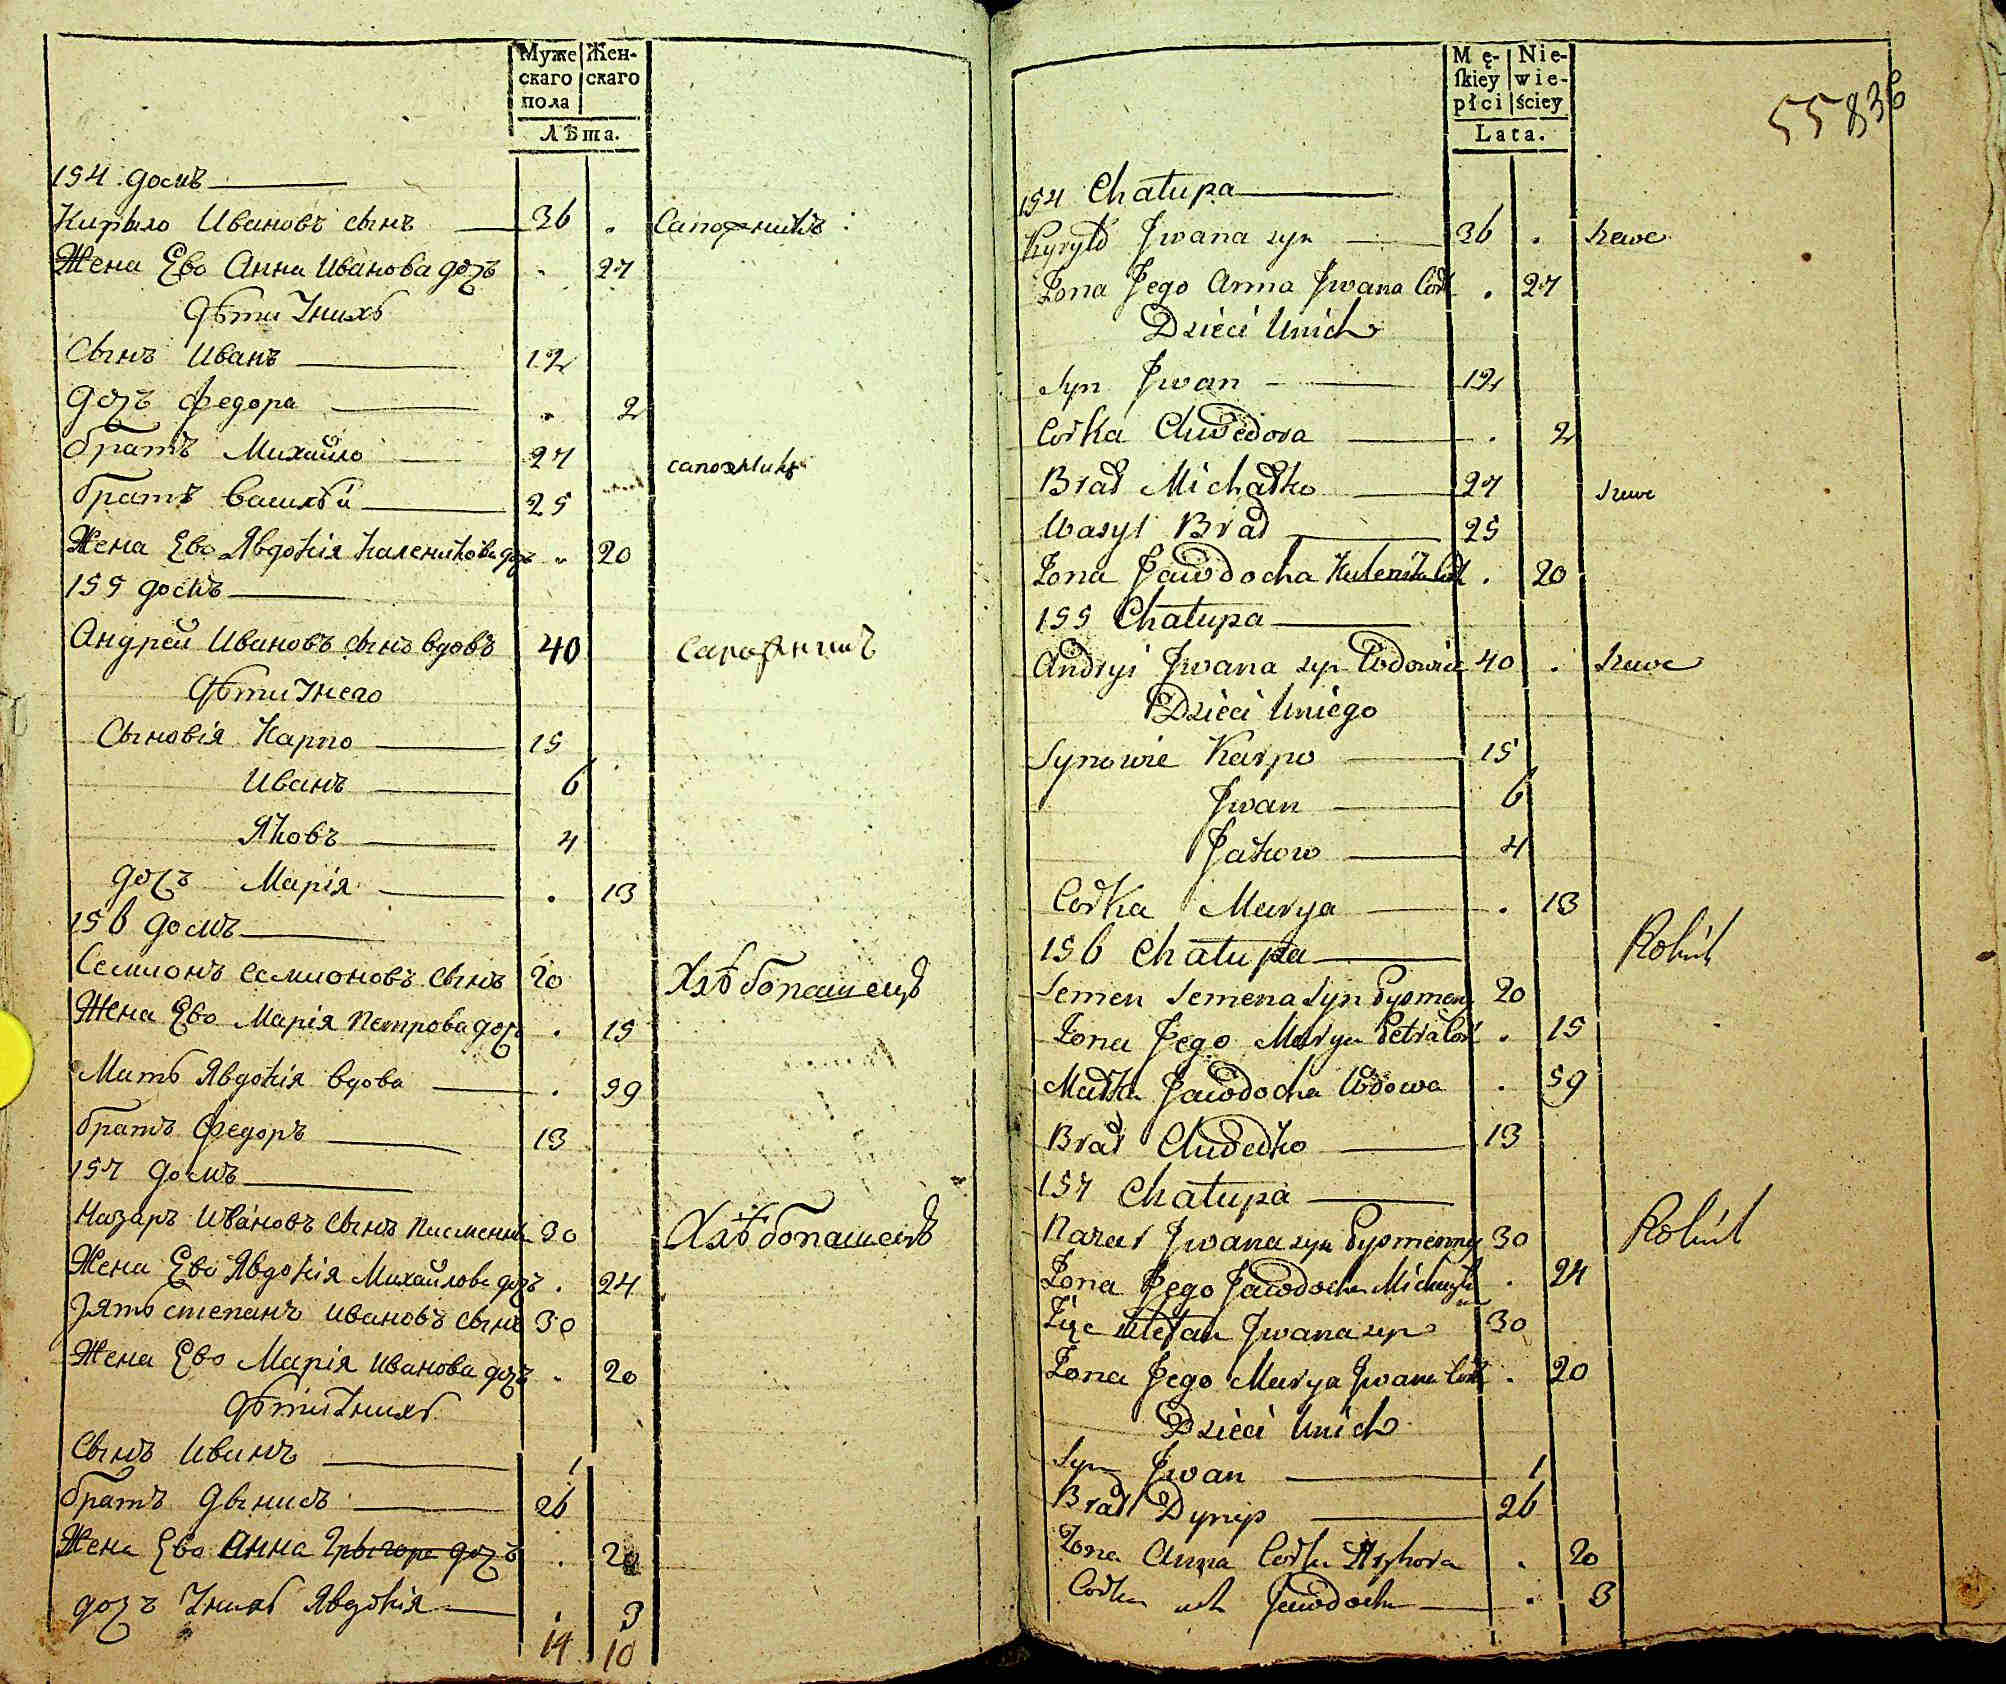 Муже Жен-
скаго скаго
пола
Лѣта.
154 домъ
Кирыло Ивановъ сынъ 36 . Сапожникъ
Жена Ево Анна Иванова дочъ . 27
Дѣти Унихъ
Сынъ Иванъ 12
дочъ Федора . 2
братъ Михайло 27 сапожникъ
братъ Василѣй 25
Жена Ево Явдокія Каленикова дочъ . 20
155 домъ
Андрей Ивановъ сынъ вдовъ 40 Сапожникъ
Дѣти Унего
Сыновія Карпо 15
Иванъ 6
Яковъ 4
дочъ Марія . 13
156 домъ
Семионъ Семионовъ Сынъ 20 Хлѣбопашецъ
Жена Ево Марія Петрова дочъ . 15
Мать Явдокія вдова . 59
братъ Федоръ 13
157 домъ
Назаръ Ивановъ Сынъ 30 Хлѣбопашецъ
Жена Ево Явдокія Михайлова дочъ . 24
Зять степанъ Ивановъ Сынъ 30
Жена Ево Марія Иванова дочъ . 20
Дѣти Унихъ
Сынъ Иванъ 1
братъ Дынисъ 26
Жена Ево Анна Грыгора дочъ . 20
дочъ Унихъ Явдокія . 3
14 10
Mę- Nie-
ſkiey wie-
płci ściey
Lata.
55836
154 Chałupa
Kyryło Jwana syn 36 . szewc
Żona Jego Anna Jwana Cór . 27
Dzieci Unich
Syn Jwan 12
Córka Chwedora . 2
Brat Michałko 27 szewc
Wasyl Brat 25
Żona Jawdocha . 20
155 Chałupa
Andryi Jwana syn Wdowiec 40 . szewc
Dzieci Uniego
Synowie Karpo 15
Jwan 6
Jakow 4
Córka Marya . 13
156 Chałupa Rolnik
Semen Semena Syn Pysmeny 20
Żona Jego Marya Petra Cór . 15
Matka Jawdocha Wdowa . 59
Brat Chwedko 13
157 Chałupa
Nazar Jwana syn Pysmenny 30 Rolnik
Żona Jego Jawdocha . 24
Zięc Stefan Jwana syn 30
Żona Jego Marya Jwana Cór . 20
Dzieci Unich
Syn Jwan 1
Brat Dynys 26
Żona Anna Córka . 20
Córka ich Jawdocha . 3